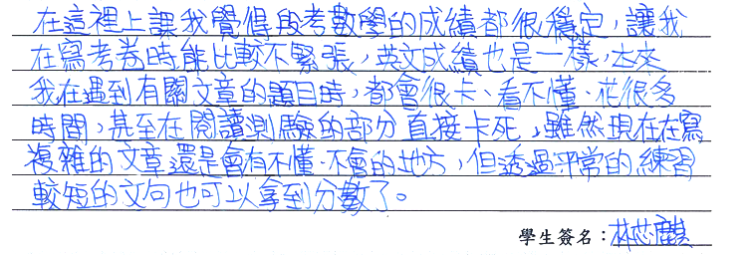 在這裡上課我覺得段考數學的成績都很穩定，讓我
在寫考卷時能比較不緊張，英文成績也是一樣，本來
我在遇到有關文章的題目時，都會很卡、看不懂、花很多
時間，甚至在閱讀測驗的部分直接卡死，雖然現在在寫
複雜的文章還是會有不懂、不會的地方，但透過平常的練習
較短的文句也可以拿到分數了。
學生簽名：林芯麒